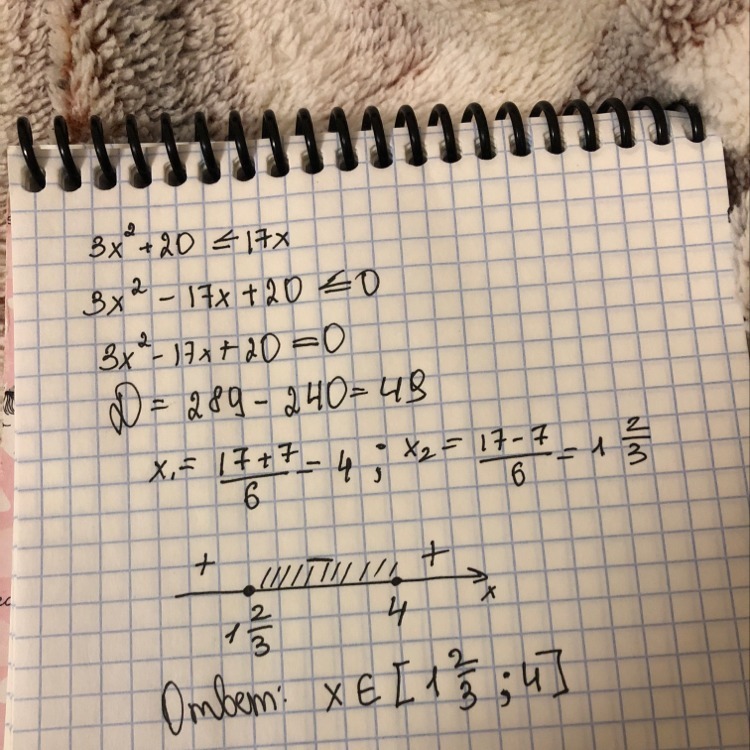 3x² + 20 ≤ 17x
3x² - 17x + 20 ≤ 0
3x² - 17x + 20 = 0
D = 289 - 240 = 49
x₁ = \frac{17+7}{6} = 4 ; x₂ = \frac{17-7}{6} = 1 \frac{2}{3}
+ - +
1 \frac{2}{3} 4 x
Ответ: x ∈ [1 \frac{2}{3} ; 4]